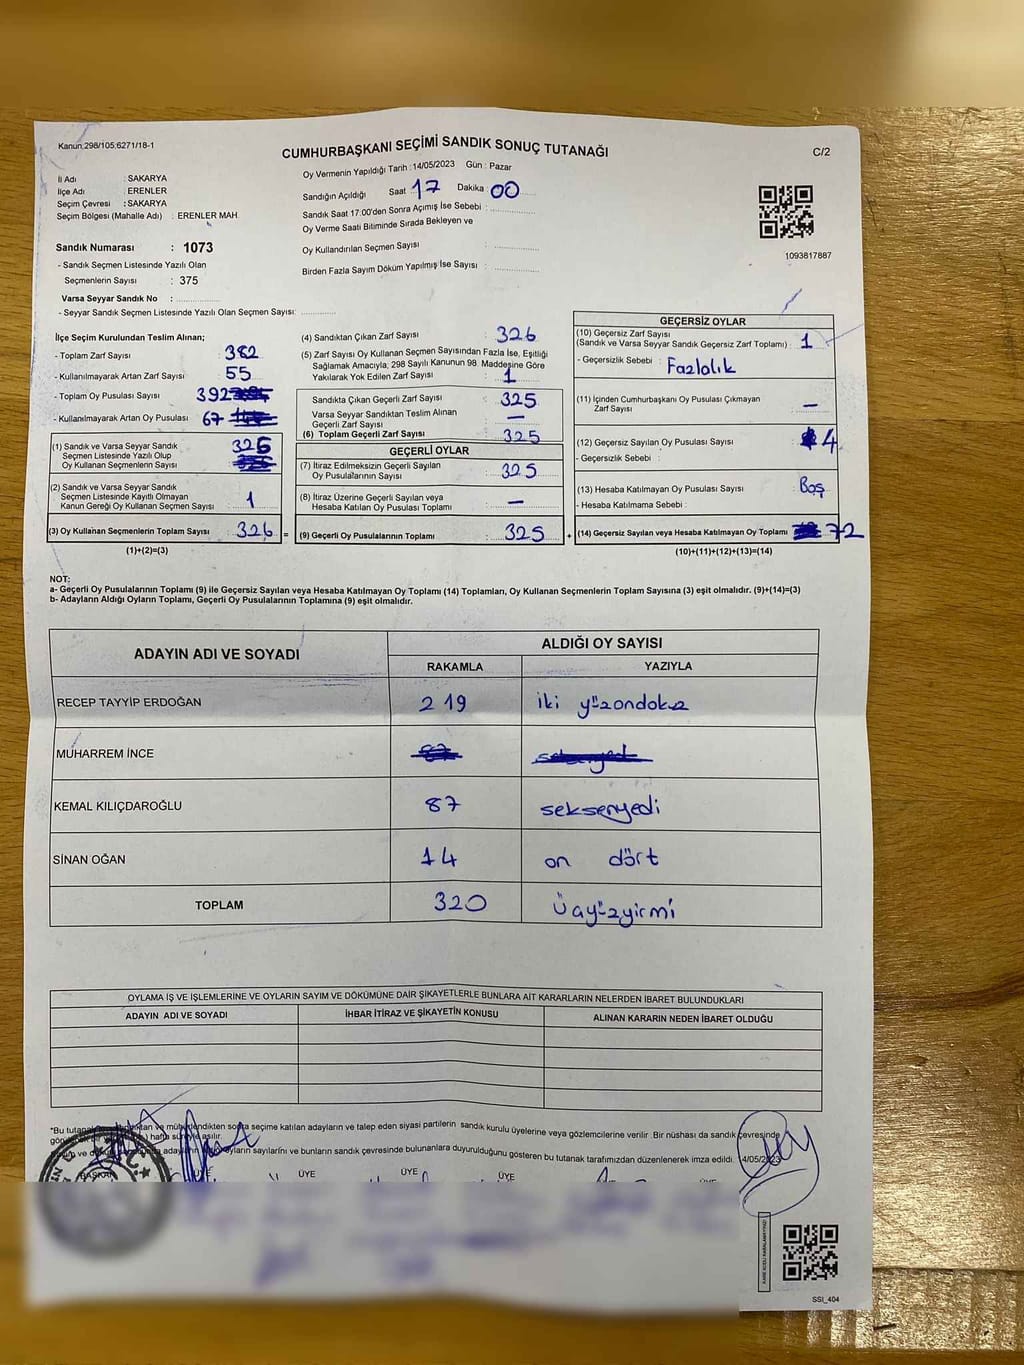 Kanun.298/105;6271/18-1
CUMHURBAŞKANI SEÇİMİ SANDIK SONUÇ TUTANAĞI
C/2
İl Adı : SAKARYA
İlçe Adı : ERENLER
Seçim Çevresi : SAKARYA
Seçim Bölgesi (Mahalle Adı) : ERENLER MAH.
Sandık Numarası : 1073
- Sandık Seçmen Listesinde Yazılı Olan
Seçmenlerin Sayısı : 375
Varsa Seyyar Sandık No :
- Seyyar Sandık Seçmen Listesinde Yazılı Olan Seçmen Sayısı:
Oy Vermenin Yapıldığı Tarih : 14/05/2023 Gün : Pazar
Sandığın Açıldığı Saat 17 Dakika : 00
Sandık Saat 17:00'den Sonra Açımış İse Sebebi :
Oy Verme Saati Bitiminde Sırada Bekleyen ve
Oy Kullandırılan Seçmen Sayısı :
Birden Fazla Sayım Döküm Yapılmış İse Sayısı :
1093817887
İlçe Seçim Kurulundan Teslim Alınan;
- Toplam Zarf Sayısı : 382
- Kullanılmayarak Artan Zarf Sayısı : 55
- Toplam Oy Pusulası Sayısı : 392
- Kullanılmayarak Artan Oy Pusulası : 67
(1) Sandık ve Varsa Seyyar Sandık
Seçmen Listesinde Yazılı Olup
Oy Kullanan Seçmenlerin Sayısı : 325
(2) Sandık ve Varsa Seyyar Sandık
Seçmen Listesinde Kayıtlı Olmayan
Kanun Gereği Oy Kullanan Seçmen Sayısı : 1
(3) Oy Kullanan Seçmenlerin Toplam Sayısı : 326 =
(1)+(2)=(3)
(4) Sandıktan Çıkan Zarf Sayısı : 326
(5) Zarf Sayısı Oy Kullanan Seçmen Sayısından Fazla İse, Eşitliği
Sağlamak Amacıyla; 298 Sayılı Kanunun 98. Maddesine Göre
Yakılarak Yok Edilen Zarf Sayısı : 1
Sandıkta Çıkan Geçerli Zarf Sayısı : 325
Varsa Seyyar Sandıktan Teslim Alınan
Geçerli Zarf Sayısı : —
(6) Toplam Geçerli Zarf Sayısı : 325
GEÇERLİ OYLAR
(7) İtiraz Edilmeksizin Geçerli Sayılan
Oy Pusulalarının Sayısı : 325
(8) İtiraz Üzerine Geçerli Sayılan veya
Hesaba Katılan Oy Pusulası Toplamı : —
(9) Geçerli Oy Pusulalarının Toplamı : 325 +
GEÇERSİZ OYLAR
(10) Geçersiz Zarf Sayısı
(Sandık ve Varsa Seyyar Sandık Geçersiz Zarf Toplamı) : 1
- Geçersizlik Sebebi : Fazlalık
(11) İçinden Cumhurbaşkanı Oy Pusulası Çıkmayan
Zarf Sayısı : —
(12) Geçersiz Sayılan Oy Pusulası Sayısı : 4
- Geçersizlik Sebebi :
(13) Hesaba Katılmayan Oy Pusulası Sayısı : Boş
- Hesaba Katılmama Sebebi :
(14) Geçersiz Sayılan veya Hesaba Katılmayan Oy Toplamı : 72
(10)+(11)+(12)+(13)=(14)
NOT:
a- Geçerli Oy Pusulalarının Toplamı (9) ile Geçersiz Sayılan veya Hesaba Katılmayan Oy Toplamı (14) Toplamları, Oy Kullanan Seçmenlerin Toplam Sayısına (3) eşit olmalıdır. (9)+(14)=(3)
b- Adayların Aldığı Oyların Toplamı, Geçerli Oy Pusulalarının Toplamına (9) eşit olmalıdır.
ADAYIN ADI VE SOYADI
ALDIĞI OY SAYISI
RAKAMLA YAZIYLA
RECEP TAYYİP ERDOĞAN 219 iki yüzondokuz
MUHARREM İNCE
KEMAL KILIÇDAROĞLU 87 seksenyedi
SİNAN OĞAN 14 on dört
TOPLAM 320 üçyüzyirmi
OYLAMA İŞ VE İŞLEMLERİNE VE OYLARIN SAYIM VE DÖKÜMÜNE DAİR ŞİKAYETLERLE BUNLARA AİT KARARLARIN NELERDEN İBARET BULUNDUKLARI
ADAYIN ADI VE SOYADI İHBAR İTİRAZ VE ŞİKAYETİN KONUSU ALINAN KARARIN NEDEN İBARET OLDUĞU
*Bu sonra seçime katılan adayların ve talep eden siyasi partilerin sandık kurulu üyelerine veya gözlemcilerine verilir. Bir nüshası da sandık çevresinde
hafta süreyle asılır.
oyların sayılarını ve bunların sandık çevresinde bulunanlara duyurulduğunu gösteren bu tutanak tarafımızdan düzenlenerek imza edildi. 14/05/2023
BAŞKAN ÜYE ÜYE ÜYE ÜYE
SSİ_404